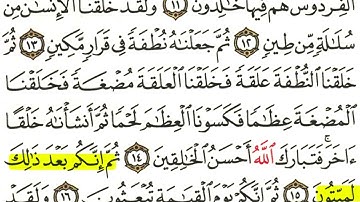 ٱلْفِرْدَوْسَ هُمْ فِيهَا خَٰلِدُونَ ١١ وَلَقَدْ خَلَقْنَا ٱلْإِنسَٰنَ مِن
سُلَٰلَةٍ مِّن طِينٍ ١٢ ثُمَّ جَعَلْنَٰهُ نُطْفَةً فِى قَرَارٍ مَّكِينٍ ١٣ ثُمَّ
خَلَقْنَا ٱلنُّطْفَةَ عَلَقَةً فَخَلَقْنَا ٱلْعَلَقَةَ مُضْغَةً فَخَلَقْنَا
ٱلْمُضْغَةَ عِظَٰمًا فَكَسَوْنَا ٱلْعِظَٰمَ لَحْمًا ثُمَّ أَنشَأْنَٰهُ خَلْقًا
ءَاخَرَ ۚ فَتَبَارَكَ ٱللَّهُ أَحْسَنُ ٱلْخَٰلِقِينَ ١٤ ثُمَّ إِنَّكُم بَعْدَ ذَٰلِكَ
لَمَيِّتُونَ ١٥ ثُمَّ إِنَّكُمْ يَوْمَ ٱلْقِيَٰمَةِ تُبْعَثُونَ ١٦ وَلَقَدْ